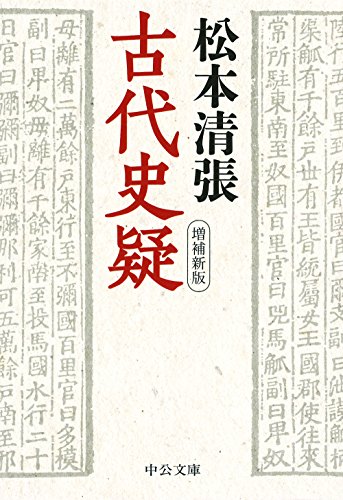 松本清張
古代史疑
増補新版
渠觚有千餘戸丗有王皆統屬女王國郡使往來
常所駐東南至奴國百里官曰兕馬觚副曰卑奴
母離有二萬餘戸東行至不彌國百里官曰多模
副曰卑奴母離有千餘家南至投馬國水行二十
日官曰彌彌副曰彌彌那利可五萬餘戸南至
中公文庫